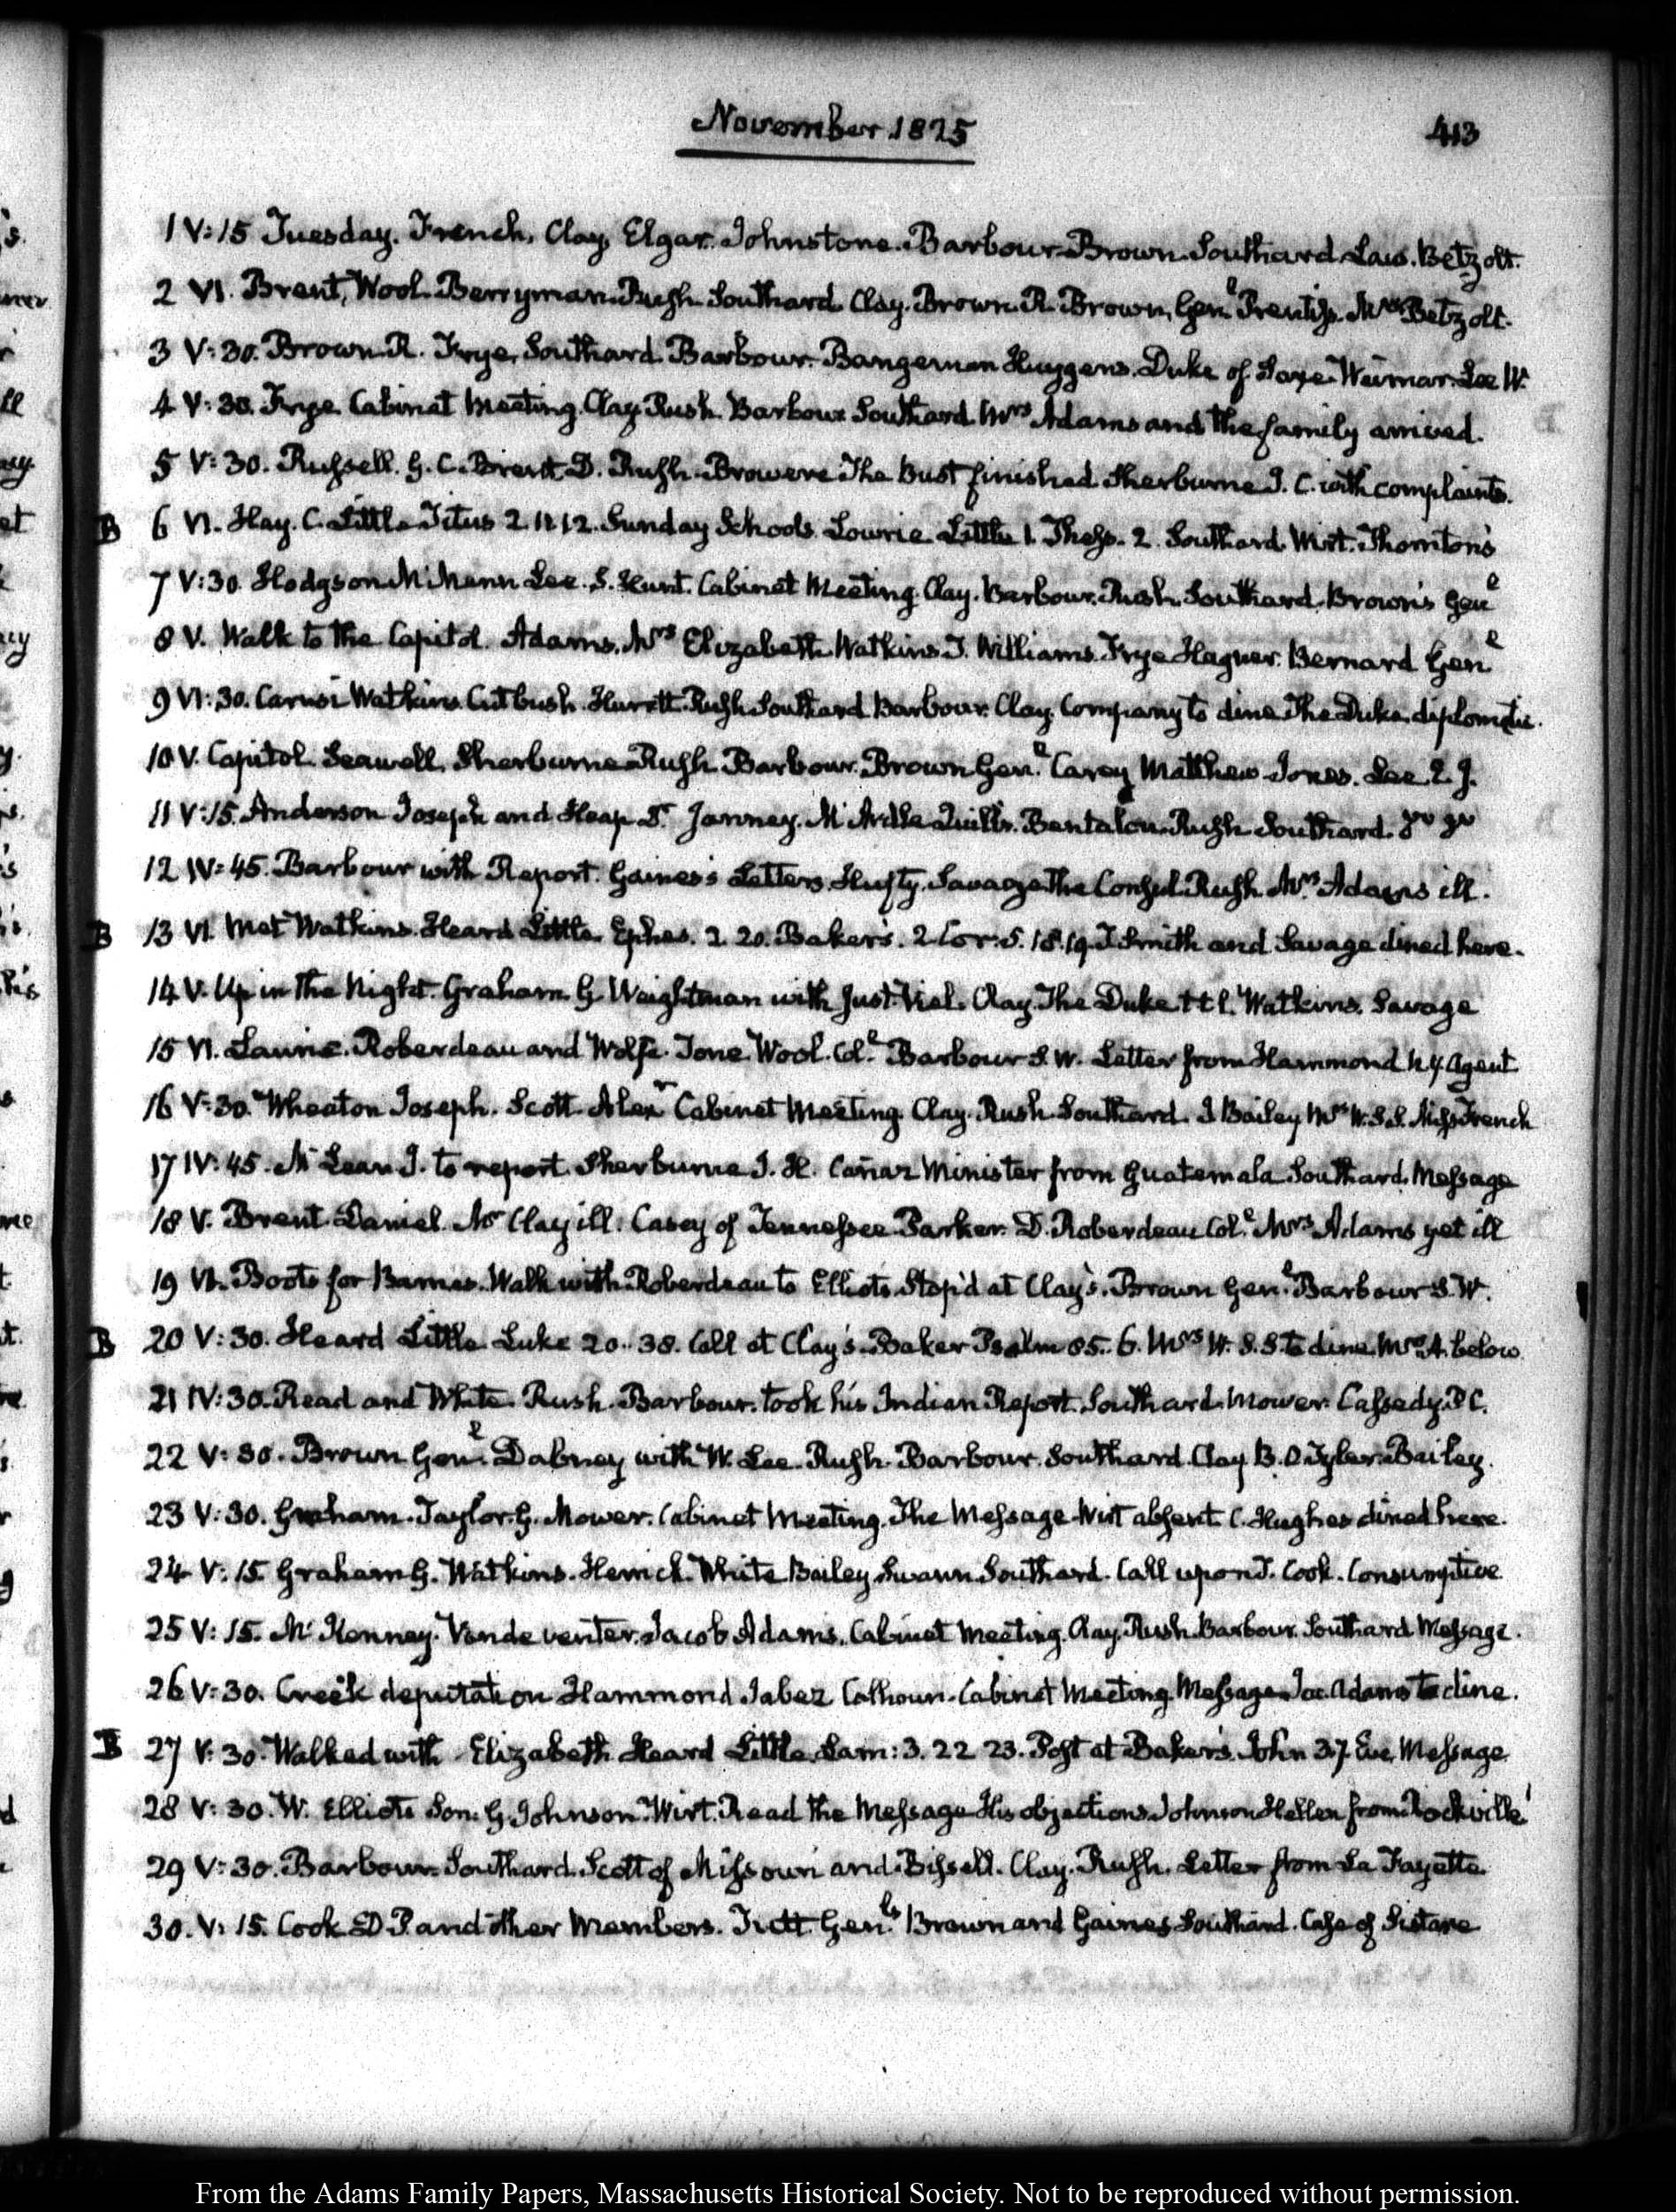 November 1825
413
1 V:15 Tuesday. French, Clay, Elgar. Johnstone. Barbour. Brown. Southard. Law. Betzolt.
2 VI. Brent, Wool. Berryman. Rush. Southard. Clay. Brown. R. Brown, Genl. Prentiss. Mrs Betzolt.
3 V:30. Brown. R. Frye. Southard. Barbour. Bangeman Huygens. Duke of Saxe-Weimar. Lee W.
4 V:30. Frye. Cabinet Meeting. Clay. Rush. Barbour. Southard. Mrs Adams and the family arrived.
5 V:30. Russell. G. C. Brent. D. Rush. Browere. The bust finished. Sherburne J. C. with complaints.
B 6 VI. Hay. C. Little. Titus 2. 11. 12. Sunday Schools. Lowrie. Little 1. Thess. 2. Southard. Wirt. Thornton's
7 V:30. Hodgson. McMann. Lee. S. Hunt. Cabinet Meeting. Clay. Barbour. Rush. Southard. Brown's Genl
8 V. Walk to the Capitol. Adams. Mrs Elizabeth. Watkins T. Williams. Frye. Hagner. Bernard Genl
9 VI:30. Carusi. Watkins. Cutbush. Rush. Southard. Barbour. Clay. Company to dine. The Duke. diplomatic.
10 V. Capitol. Seawell. Sherburne. Rush. Barbour. Brown Genl. Carey Matthew. Jones. Lee. Z. J.
11 V:15. Anderson Joseph and Heap S. Janney. Quills. Bentalou. Rush. Southard.
12 IV:45. Barbour with Report. Gaines's Letters. Savage the Consul. Rush. Mrs Adams ill.
B 13 VI. Met Watkins. Heard Little. Ephes. 2. 20. Baker's. 2 Cor: 5. 18. 19. J. Smith and Savage dined here.
14 V. Up in the Night. Graham. G. Weightman with Clay. The Duke t.t.l. Watkins. Savage
15 VI. Laurie. Roberdeau and Wolfe. Tone. Wool. Col. Barbour S. W. Letter from Hammond N.Y. Agent
16 V:30. Wheaton Joseph. Scott Alexr Cabinet Meeting. Clay. Rush. Southard. J Bailey Mrs W. S. S. Miss French
17 IV:45. McLean J. to report. Sherburne J. H. Cañaz Minister from Guatemala. Southard. Message
18 V. Brent Daniel. Mr Clay ill. Casey of Tennessee. Parker. D. Roberdeau Col. Mrs Adams yet ill
19 VI. Boots for Barnes. Walk with Roberdeau to Elliots. Stop'd at Clay's. Brown Genl. Barbour S. W.
B 20 V:30. Heard Little. Luke 20. 38. Call at Clay's. Baker Psalm 85. 6. Mrs W. S. S. to dine. Mrs A. below.
21 IV:30. Read and White. Rush. Barbour. took his Indian Report. Southard. Mower. Cassedy. P C.
22 V:30. Brown Genl. Dabney with W. Lee. Rush. Barbour. Southard. Clay. B. O. Tyler. Bailey.
23 V:30. Graham. Taylor. G. Mower. Cabinet Meeting. The Message. Wirt absent. C. Hughes dined here.
24 V:15. Graham G. Watkins. Herrick. White. Bailey. Swann. Southard. Call upon J. Cook. Consumptive
25 V:15. McKenney. Vandeventer. Jacob Adams. Cabinet Meeting. Clay. Rush. Barbour. Southard. Message.
26 V:30. Creek deputation. Hammond Jabez. Calhoun. Cabinet Meeting. Message. Jac. Adams to dine.
B 27 V:30. Walked with Elizabeth. Heard Little. Lam: 3. 22. 23. Post at Baker's. John 3. 7. Eve. Message
28 V:30. W. Elliot's Son. G. Johnson. Wirt. Read the Message. His objections. Johnson Hellen from Rockville
29 V:30. Barbour. Southard. Scott of Missouri and Bissell. Clay. Rush. Letter from La Fayette.
30. V:15. Cook D. P. and other Members. Tutt. Genls Brown and Gaines. Southard. Case of Sistare
From the Adams Family Papers, Massachusetts Historical Society. Not to be reproduced without permission.